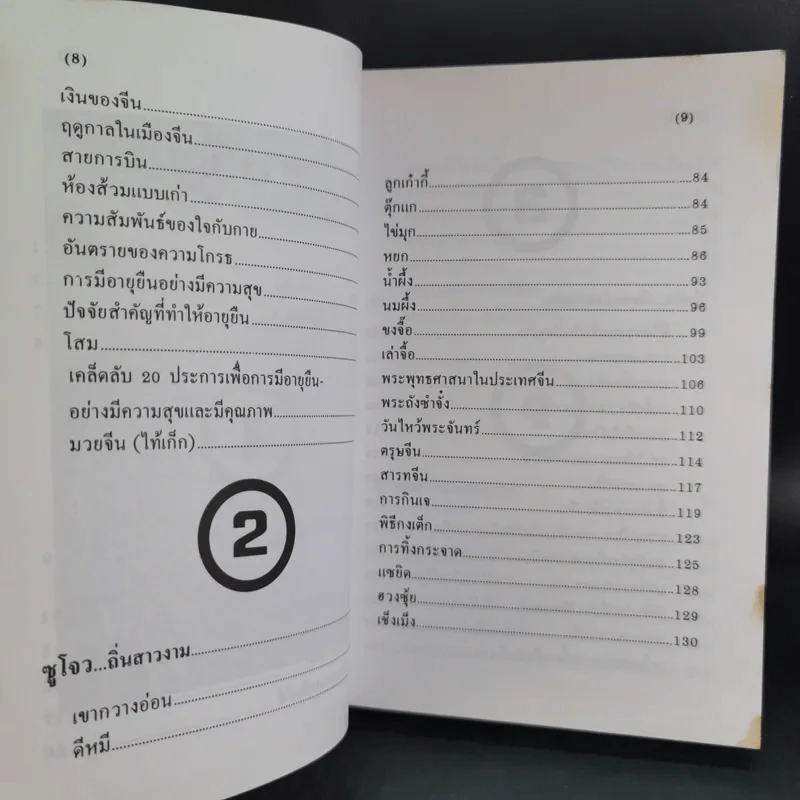 (8)
เงินของจีน
ฤดูกาลในเมืองจีน
สายการบิน
ห้องส้วมแบบเก่า
ความสัมพันธ์ของใจกับกาย
อันตรายของความโกรธ
การมีอายุยืนอย่างมีความสุข
ปัจจัยสำคัญที่ทำให้อายุยืน
โสม
เคล็ดลับ 20 ประการเพื่อการมีอายุยืน-
อย่างมีความสุขและมีคุณภาพ
มวยจีน (ไท้เก็ก)
2
ซูโจว...ถิ่นสาวงาม
เขากวางอ่อน
ดีหมี
(9)
ลูกเก๋ากี้ 84
ตุ๊กแก 84
ไข่มุก 85
หยก 86
น้ำผึ้ง 93
นมผึ้ง 96
ขงจื๊อ 99
เล่าจื๊อ 103
พระพุทธศาสนาในประเทศจีน 106
พระถังซำจั๋ง 110
วันไหว้พระจันทร์ 112
ตรุษจีน 114
สารทจีน 117
การกินเจ 119
พิธีกงเต็ก 123
การทิ้งกระจาด 125
แซยิด 128
ฮวงซุ้ย 129
เช็งเม็ง 130